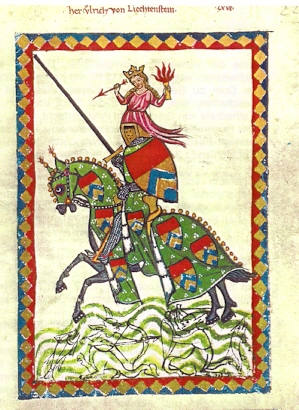 her Ulrich von Liechtenstein.